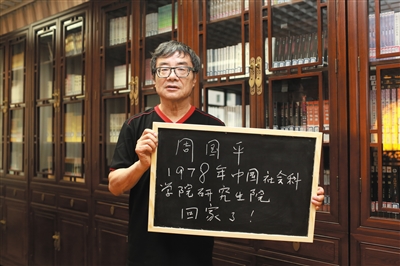 周国平
1978年中国社会科
学院研究生院
回家了!